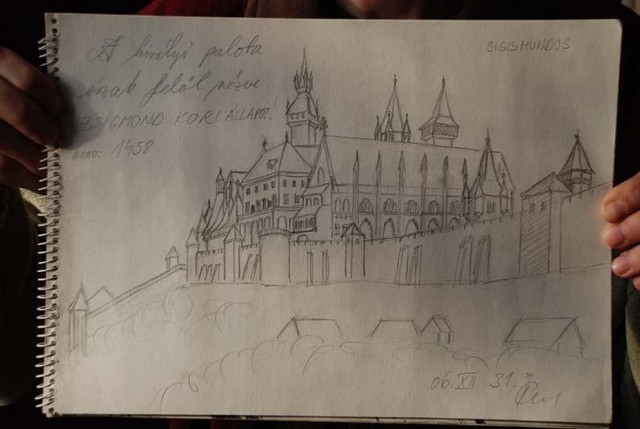 A királyi palota
észak felől nézve
ZSIGMOND KORI ÁLLAPOT!
1458
SIGISMONDUS
06. XII 31.